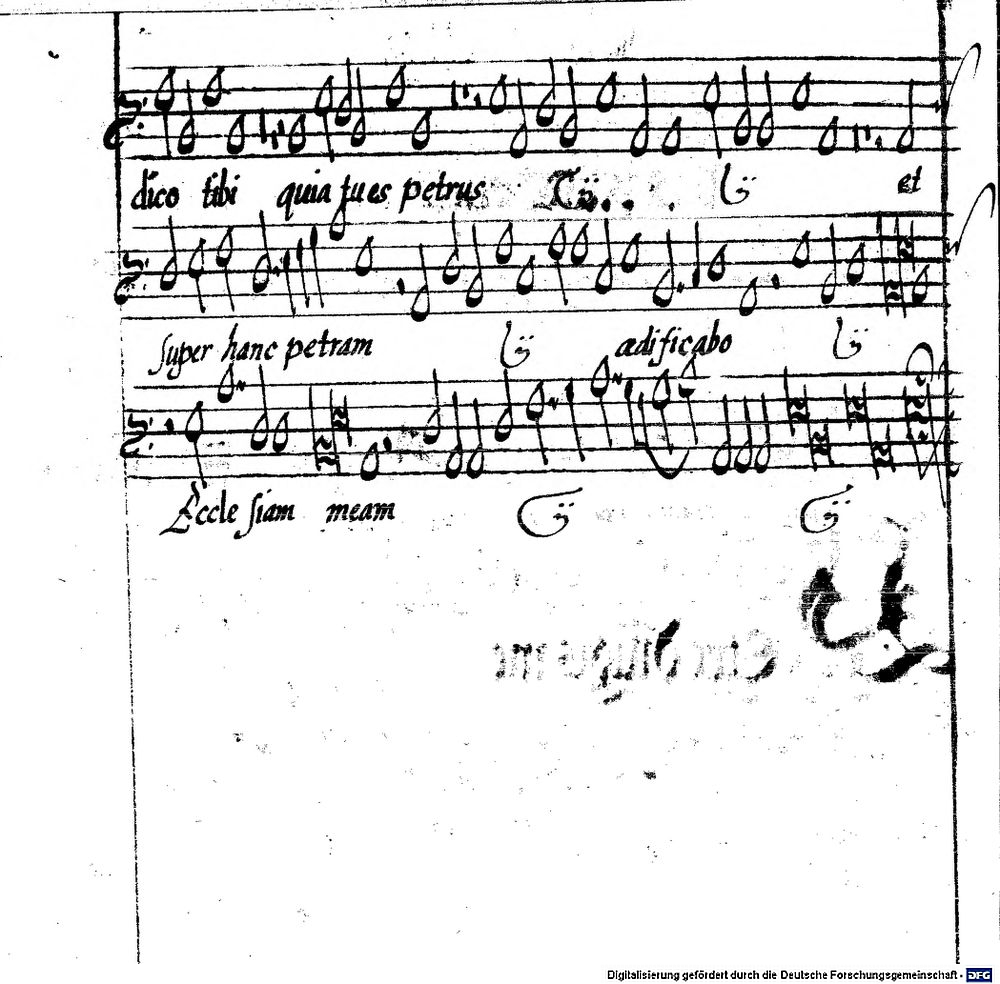 dico tibi quia tu es petrus et
super hanc petram ædificabo
Eccle siam meam
Digitalisierung gefördert durch die Deutsche Forschungsgemeinschaft - DFG